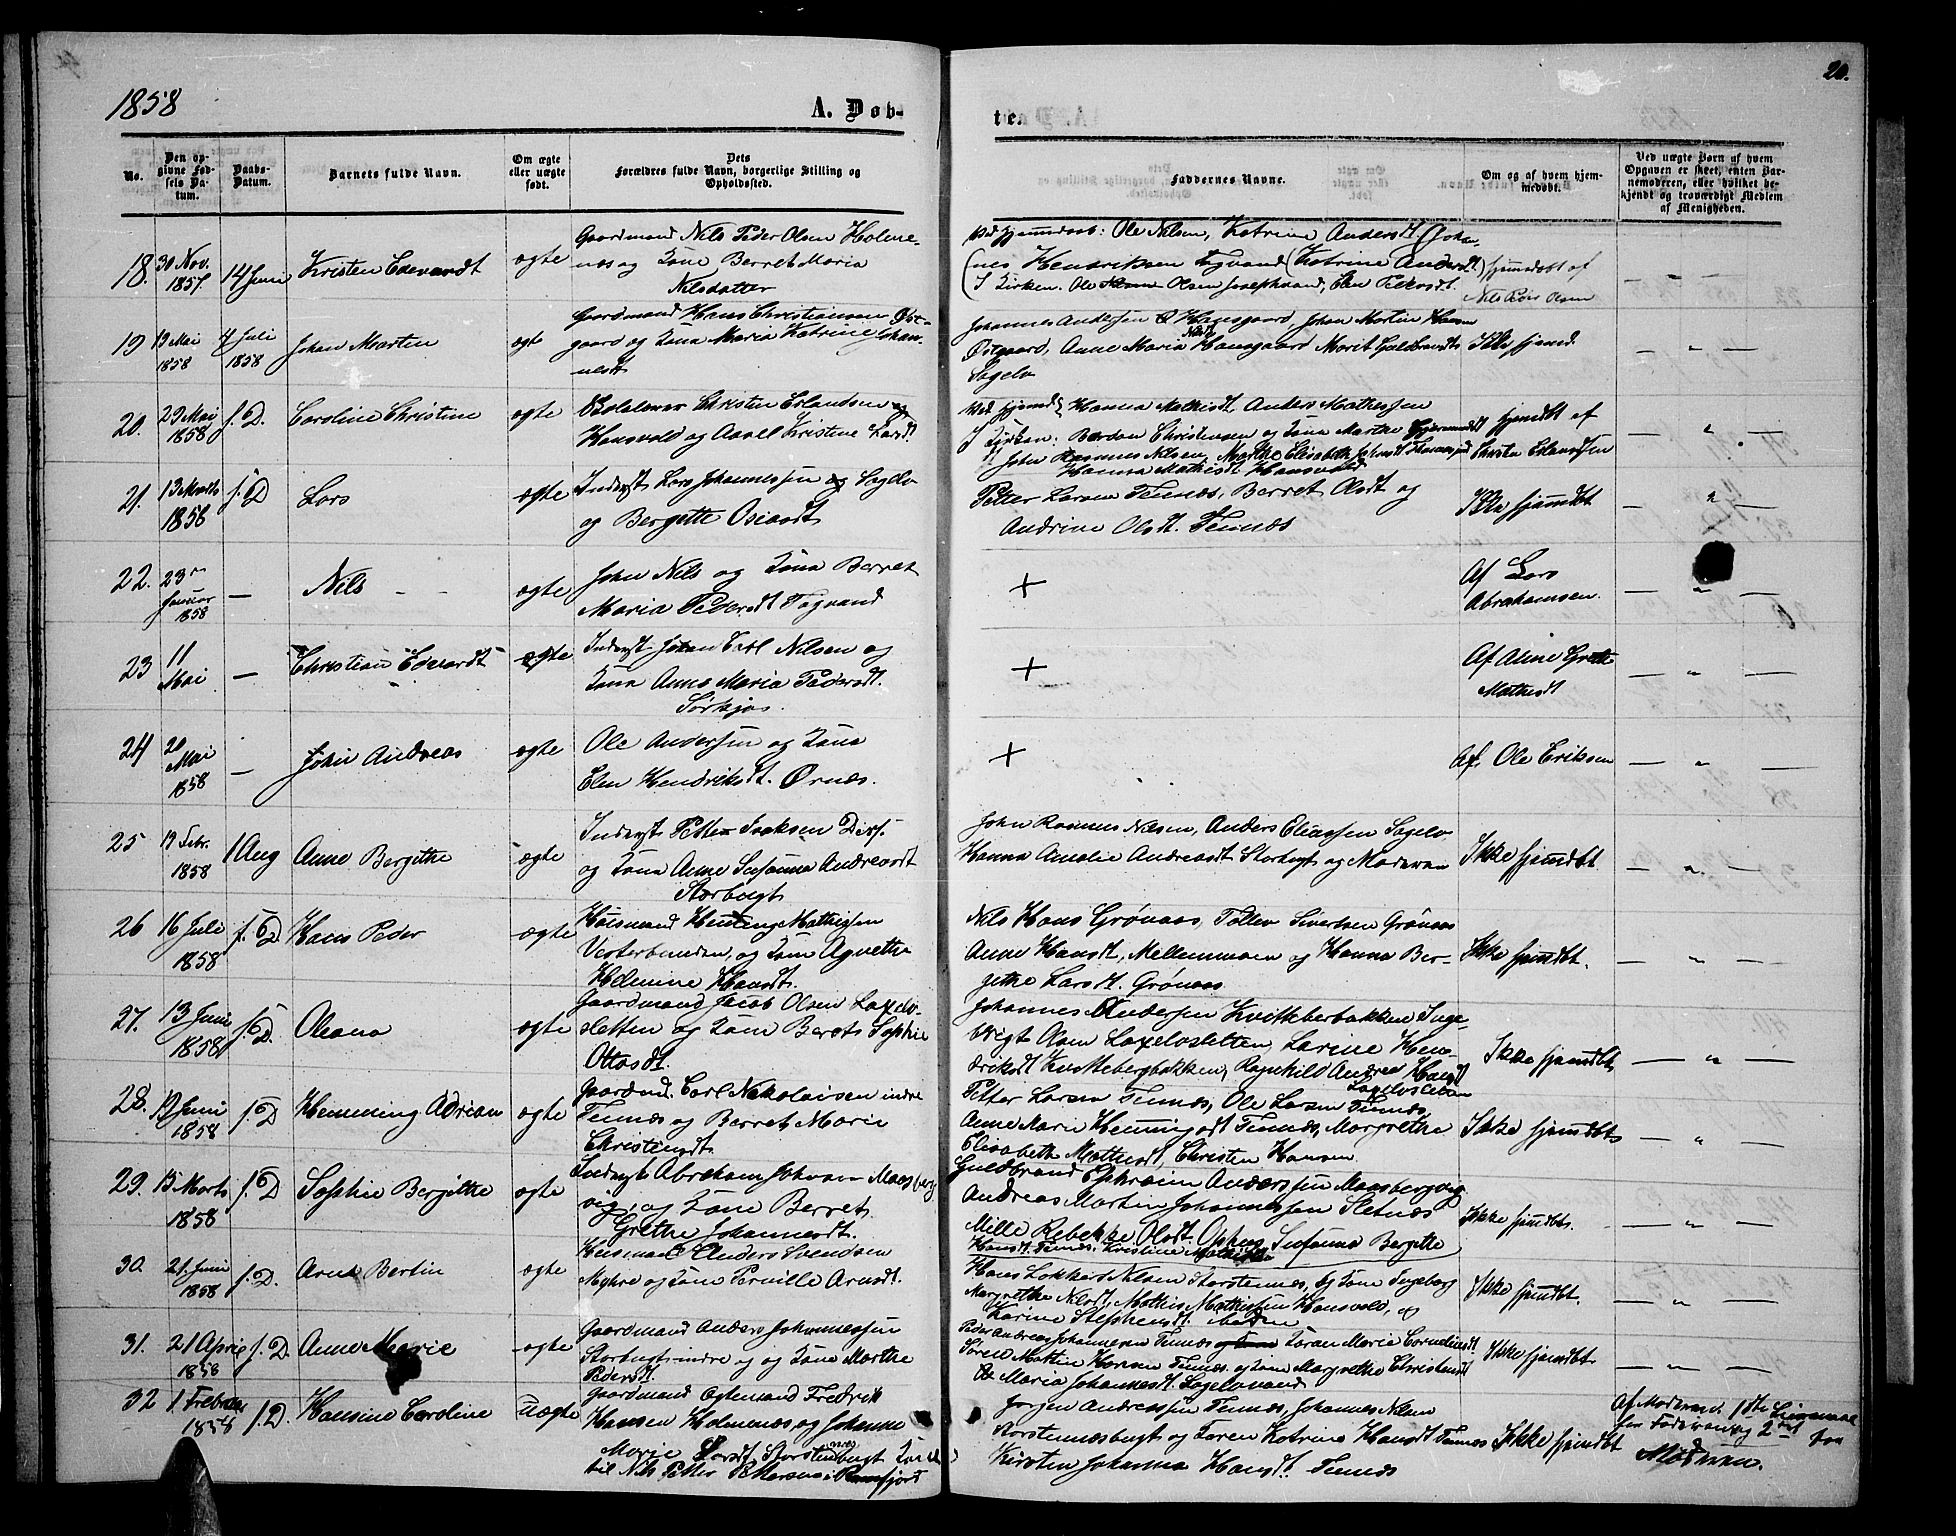 1858
A. Døb-
te.
20.
No.
Den op-
givne Fød-
sels Da-
tum.
Daabs-
Datum.
Barnets fulde Navn.
Om ægte
eller uægte
født.
Dets
Forældres fulde Navn, borgerlige Stilling og
Opholdssted.
Faddernes Navne.
Om og af hvem hjem-
medøbt.
Ved uægte Børn af hvem
Opgaven er skeet, enten Bar-
nemoderen, eller hvilket be-
kjendt og troværdigt Medlem
af Menigheden.
18.
30 Nov.
1857
14 Juni
Kristen Edevardt
ægte
Gaardmand Nils Peder Olsen Holme-
næs og Kone Berret Maria
Nilsdatter
Ved hjemmedaab: Ole Nilsen, Katrine Andersdt (Johan-
nes Hendriksen Tagvand (Katrine Andersdt.)
I Kirken. Ole Olsen Josephvand, Elen
hjemdøbt af
Nils Olsen
— " —
19
13 Mai
1858
4 Juli
1858
Johan Martin
ægte
Gaardmand Hans Christiansen Øst-
gaard og Kone Maria Katrine Johan-
nesdt
Johannes Andersen Hansgaard Johan Martin Hansen
Østgaard, Anne Maria Nilsdt Hansgaard Marit Guldbrandsdt
Sagelv
Ikke hjemd.
— " —
20.
29 Mai
1858
f. D.
Caroline Christine
ægte
Christen Erlandsen
Hansvold og Kristine Larsdt
Ved hjemd Hanna Mathisdt Anders Mathissen
I Kirken: Bardon Christensen og Kone Marthe
John Rasmus Nilsen, Marthe Elisabeth
Hanna Mathisdt Hansvold
hjemdbt af
Christen Erlandsen
— " —
21.
13 Marts
1858
f. D
Lars
ægte
Inderst Lars Johannessen Sagelv
og Bergette
Petter Larsen Tennes, Berret Olsdt og
Andrine Olsdt. Tennes
Ikke hjemdbt
— " —
22.
23
Januar
1858
—
Nils
ægte
John Nils og Kone Berret
Maria Pedersdt Tagvand
+
Af Lars
Abrahamsen.
— " —
23
11
Mai
—
Christian Edevardt
ægte
Inderst Johan Carl Nilsen og
Kone Anne Maria Pedersdt.
Sørkjos.
+
Af Aline Grethe
Mathisdt
— " —
24
20
Mai
1858
—
John Andreas
ægte
Ole Andersen og Kone
Elen Hendriksdt. Ørnæs.
+
Af. Ole Eriksen
— " —
25
19 Febr.
1858
1 Aug
Anne Bergithe
ægte
Inderst Petter Isaksen
og Kone Anne Susanna Andreasdt
Storbugt
John Rasmus Nilsen, Anders Eliassen Sagelv
Hanna Amalie Andreasdt Storbugt og Moderen
Ikke hjemdbt.
— " —
26
16 Juli
1858
f. D
Hans Peder
ægte
Huusmand Henning Mathissen
Vesterbunden, og Kone Agnethe
Helmine Hansdt.
Nils Hans Grønaas, Tollev Sivertsen Grønaas
Anne Hansdt, Mellemmoen og Hanna Ber-
gethe Larsdt. Grønaas
Ikke hjemdbt.
— " —
27.
13 Juni
1858
f. D.
Oleana
ægte
Gaardmand Jacob Olsen Laxelv-
sletten og Kone Berets Sophie
Ottosdt.
Johannes Andersen Kvitbergbakken Inge-
brigt Olsen Laxelvsletten, Larine Hen-
driksdt Kvitebergbakken, Ragnhild Andrea Hansdt
Laxelvsletten
Ikke hjemdbt
— " —
28.
19 Juni
1858
f. D
Hemming Adrian
ægte
Gaardmd. Carl Nikolaisen indre
Tennæs og Berret Marie
Christensdt
Petter Larsen Tennes, Ole Larsen Tennæs
Anne Marie Henningsdt Tennæs, Margrethe
Elisabeth Mathisdt, Christen Hansen
Ikke hjemdbt
— " —
29.
15 Marts
1858
f. D
Sophie Bergithe
ægte
Inderst Abraham Johnsen Maasberg-
vig, og Kone Berret
Grethe Johannesdt.
Guldbrand Ephraim Anderssen Maasbergvig
Andreas Martin Johannessen Sletnæs
Mille Rebekke Olsdt. Susanna Bergette
Hansdt. Tennes. Kristine
Ikke hjemdbt.
— " —
30.
21. Juni
1858
f. D.
Arne Bertin
ægte
Huusmand Anders Svendsen
Myhre og Kone Pernille Arnsdt.
Hans Lokkert Nilsen Storstennæs, og Kone Ingeborg
Margrethe Nilsdt, Mathis Mathissen Hansvold, og
Karine Stephensdt.
Ikke hjemdbt.
— " —
31.
21 April
1858
f. D.
Anne Marie
ægte
Gaardmand Anders Johannessen
Storbugt indre og Kone Marthe
Pedersdt.
Peder Andreas Johannessen Tennæs Maria Corneliusdt
Søren Martin Hansen Tennæs og Kone Margrethe Christensdt
Maria Johannesdt. Sagelvvand
Ikke hjemdbt.
— " —
32
1 Februar
1858
f. D.
Hansine Caroline
uægte
Gaardmand Ogtemand Fredrik
Hansen Holmenæs og Johanne
Marie Larsdt Storstennæsbugt Kone
til Nils Petter Pettersen Ramfjord
Jørgen Andreassen Tennæs, Johannes Nilsen
Storstennæsbugt og Karen Katrine Hansdt Tennes
Kirsten Johanna Hansdt. Tennes
Ikke hjemdbt
Af Moderen. 1ste Leiermaal
for Faderen og 2det for
Moderen.